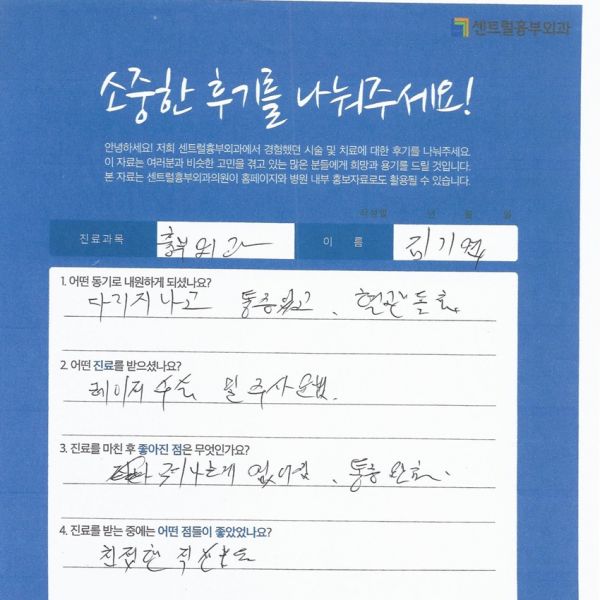 센트럴흉부외과
소중한 후기를 나눠주세요!
안녕하세요! 저희 센트럴흉부외과에서 경험했던 시술 및 치료에 대한 후기를 나눠주세요.
이 자료는 여러분과 비슷한 고민을 겪고 있는 많은 분들에게 희망과 용기를 드릴 것입니다.
본 자료는 센트럴흉부외과의원이 홈페이지와 병원 내부 홍보자료로도 활용될 수 있습니다.
작성일 년 월 일
진료과목 흉부외과 이 름 김기연
1. 어떤 동기로 내원하게 되셨나요?
통증있고, 혈관돌출
2. 어떤 진료를 받으셨나요?
레이저 수술 및 주사요법.
3. 진료를 마친 후 좋아진 점은 무엇인가요?
없어짐, 통증 완화.
4. 진료를 받는 중에는 어떤 점들이 좋았었나요?
친절한 직원분들